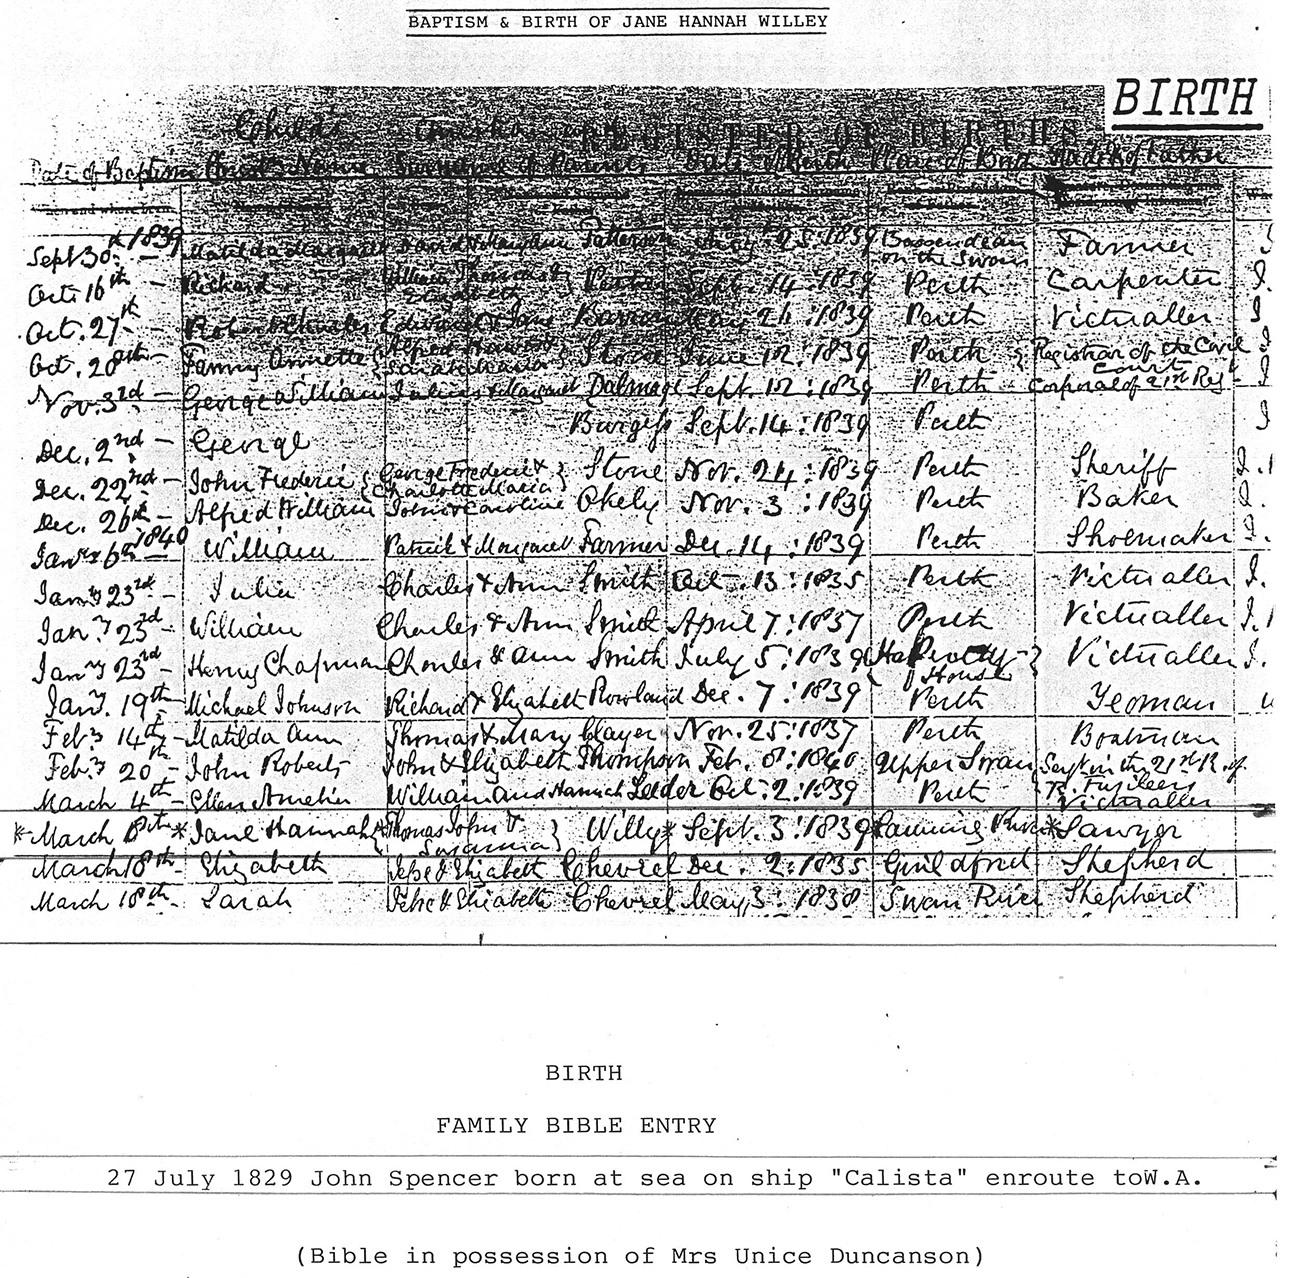 BAPTISM & BIRTH OF JANE HANNAH WILLEY
BIRTH
Child's
REGISTER OF BIRTHS
Date of Baptism Date of Birth Place of Birth
Sept 30th 1839 Matilda Margaret Patterson Augt 25:1839 Bassendean on the Swan Farmer
Oct. 16th - Richard William Thomas & Elizabeth } Sept. 14:1839 Perth Carpenter
Oct. 27th - Robert Charles Edward & Jane May 24:1839 Perth Victualler
Oct. 28th - Fanny Annette { Alfred Hawes & Sarah Maria } Stone June 12:1839 Perth { Registrar of the Civil Court
Nov. 3rd - George William Julius & Margaret Dalmage Sept. 12:1839 Perth - Corporal of 21st Regt
Dec. 2nd - George Burgess Sept. 14:1839 Perth
Dec. 22nd - John Frederic { George Frederic & Charlotte Maria } Stone Nov. 24:1839 Perth Sheriff
Dec. 26th - Alfred William John & Caroline Okely Nov. 3:1839 Perth Baker
Jany 6th 1840 William Patrick & Margaret Farmer Dec. 14:1839 Perth Shoemaker
Jany 23rd - Julia Charles & Ann Smith Oct. 13:1835 Perth Victualler
Jany 23rd - William Charles & Ann Smith April 7:1837 Perth Victualler
Jany 23rd - Henry Chapman Charles & Ann Smith July 5:1839 { House } Victualler
Jany. 19th - Michael Johnson Richard & Elizabeth Rowland Dec. 7:1839 Perth Yeoman
Feby 14th - Matilda Ann Thomas & Mary Glayer Nov. 25:1837 Perth Boatman
Feby 20th - John Roberts John & Elizabeth Thompson Feb. 8:1840 Upper Swan Sergt in the 21st R. of R. Fusileers
March 4th - Ellen Amelia William and Hannah Leeder Oct. 2:1839 Perth - Victualler
* March 8th * Jane Hannah * { Thomas John & Susanna } Willy * Sept. 3:1839 Canning River * Sawyer
March 18th - Elizabeth Jesse & Elizabeth Cheverel Dec. 2:1835 Guildford Shepherd
March 18th - Sarah Jesse & Elizabeth Cheverel May 3:1838 Swan River Shepherd
BIRTH
FAMILY BIBLE ENTRY
27 July 1829 John Spencer born at sea on ship "Calista" enroute toW.A.
(Bible in possession of Mrs Unice Duncanson)